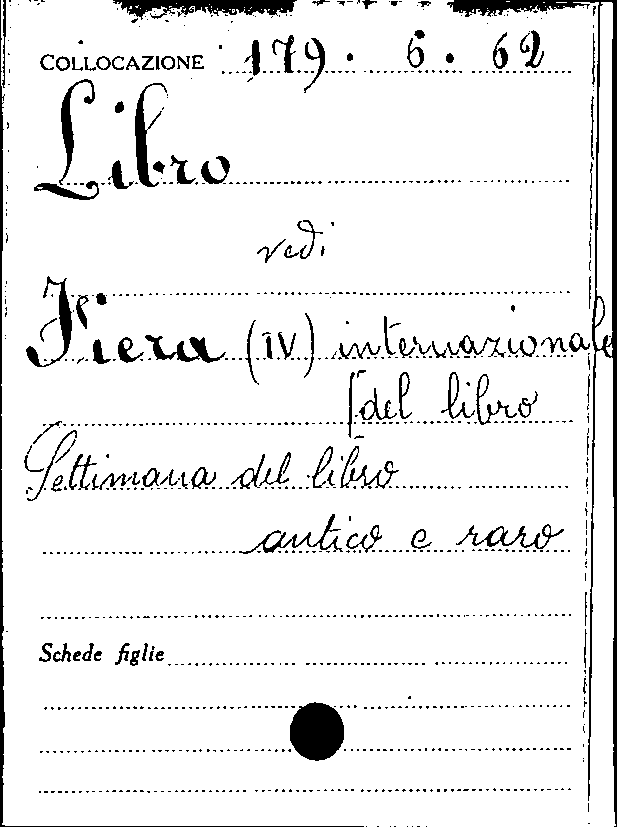 COLLOCAZIONE 179. 6. 62
Libro
vedi
Fiera (IV) internazionale
[del libro
Settimana del libro
antico e raro
Schede figlie